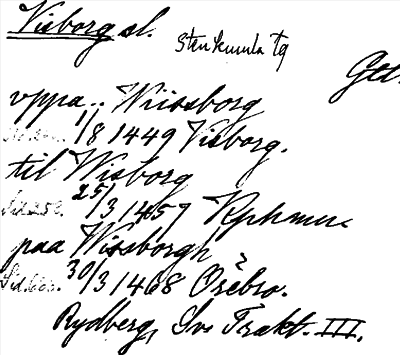 Visborg sl.
Stenkumla tg
Gtl.
vppa.. Wiissborg
1/8 1449 Visborg.
til Wisborg
25/3 1457 Kphmn.
paa Wissborgh
30/3 1468 Örebro.
Rydberg, Sv Trakt. III.